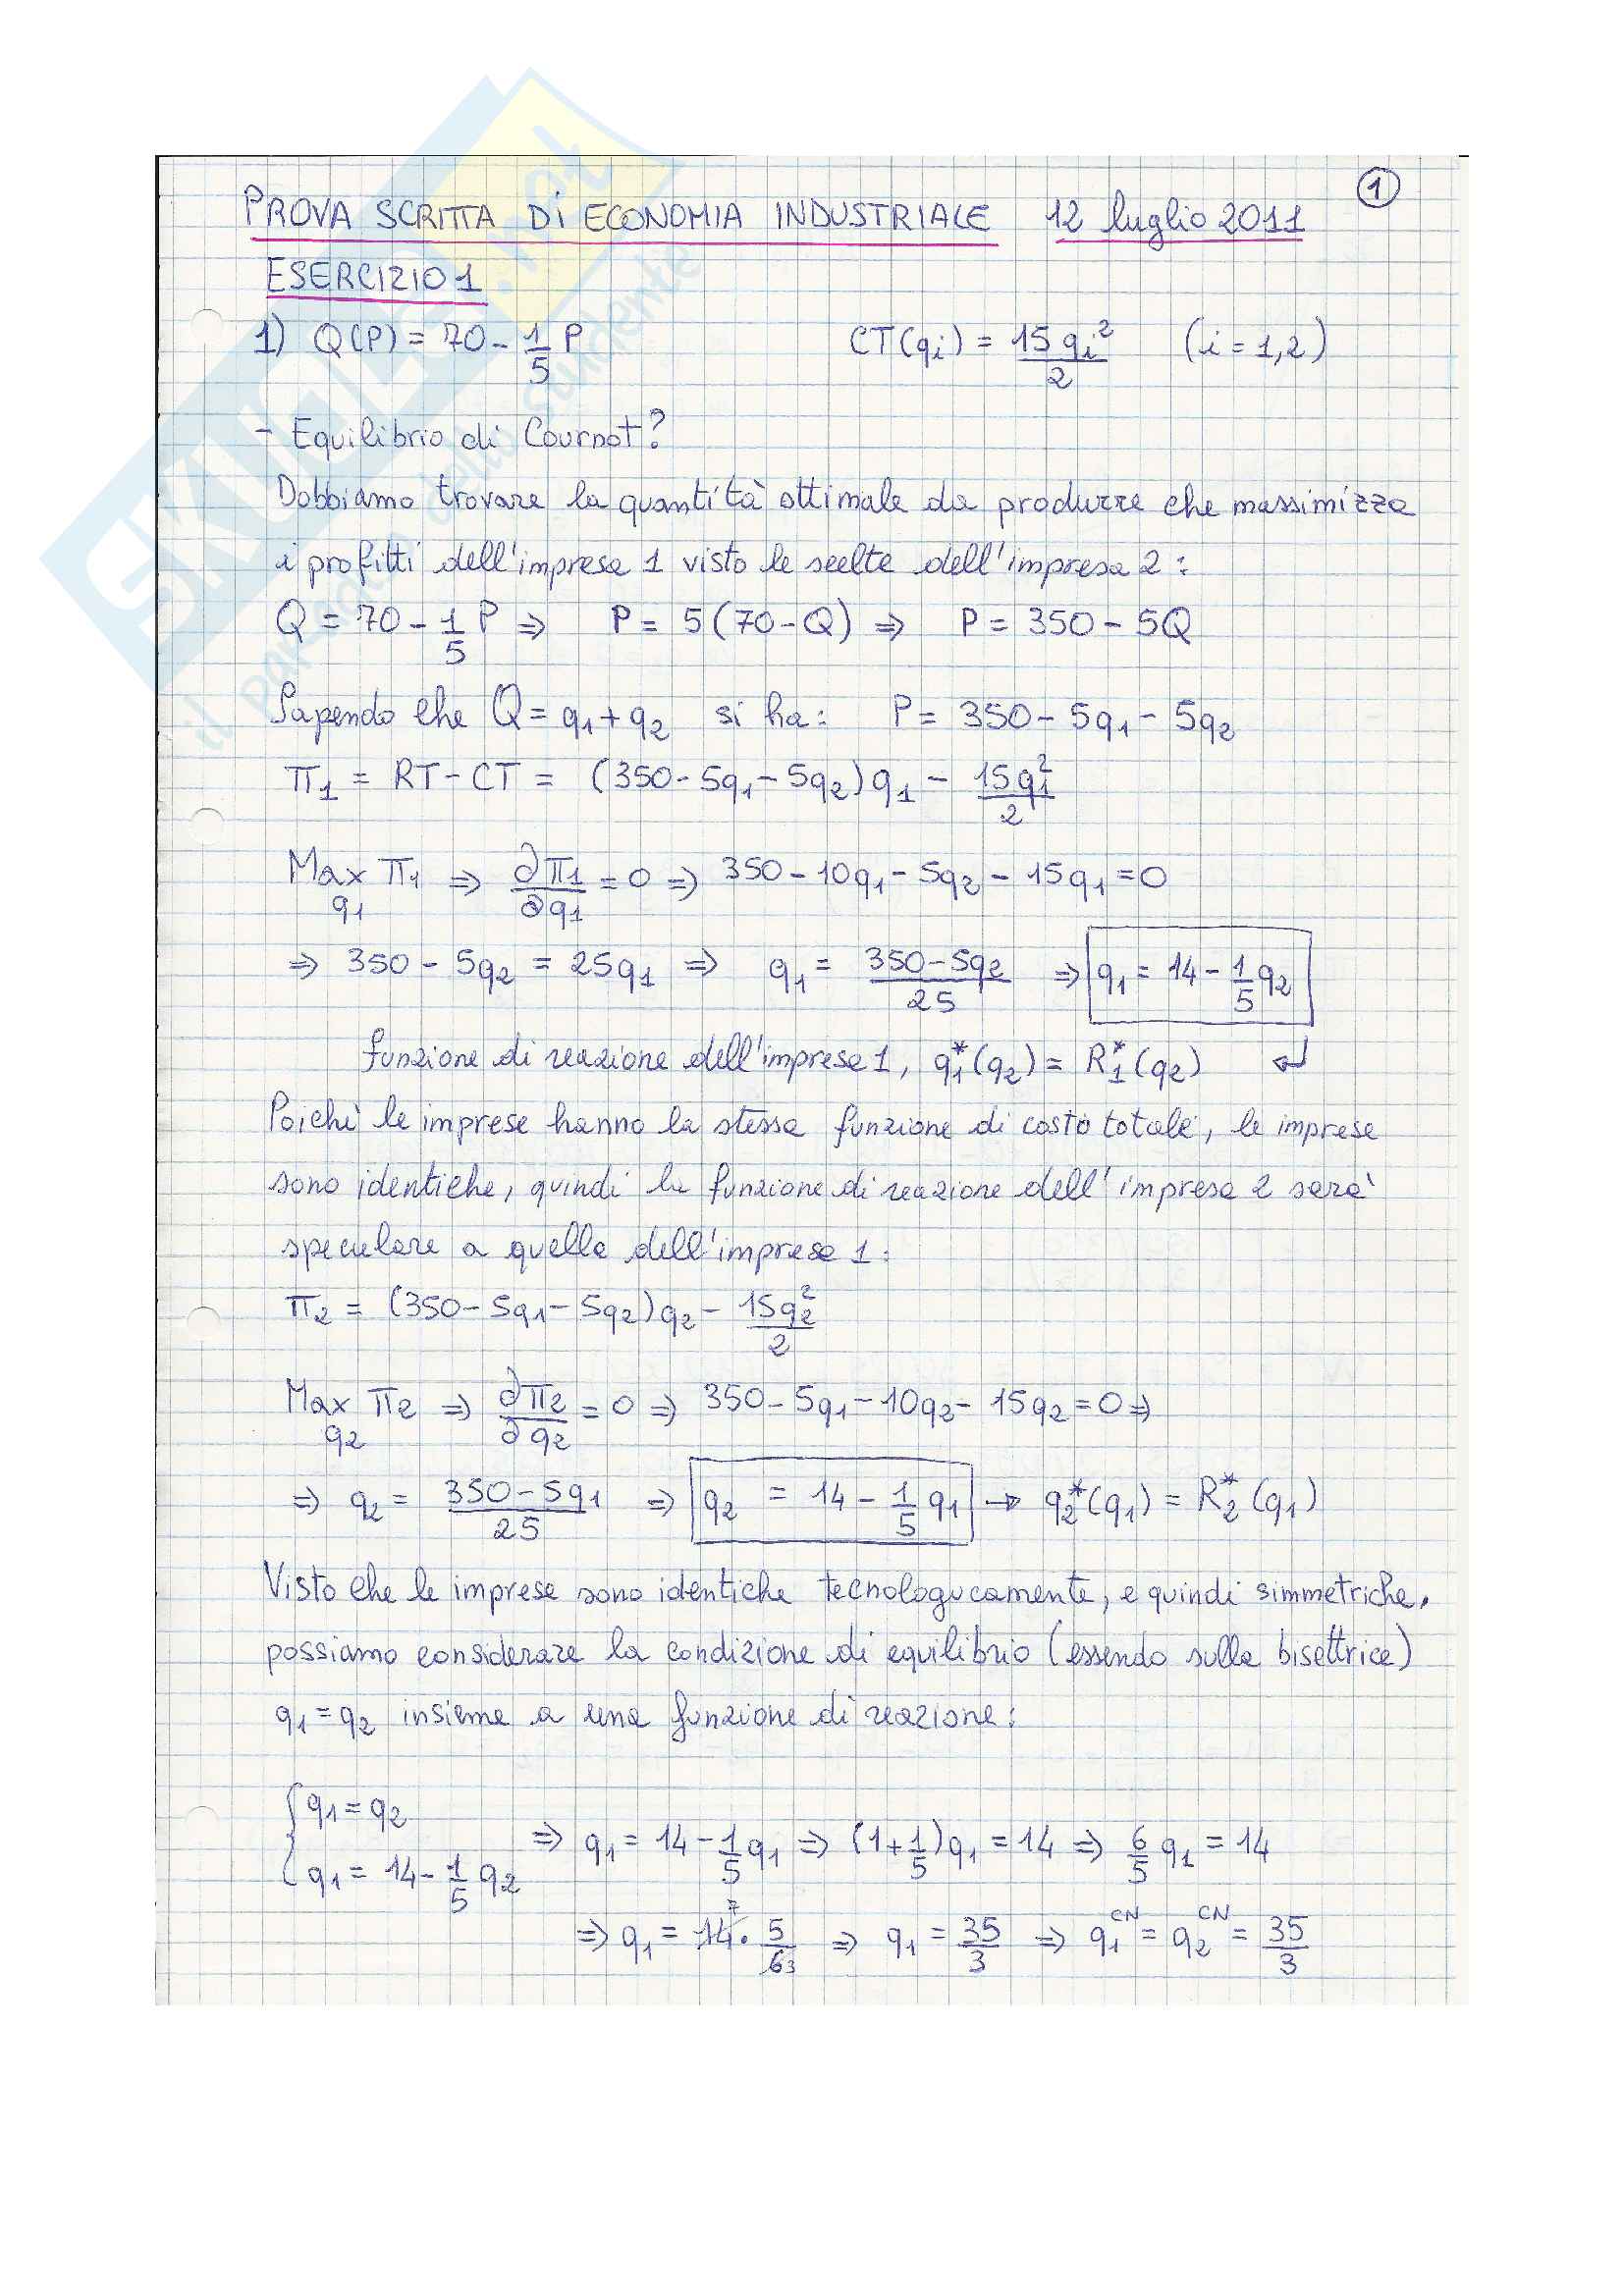 1
PROVA SCRITTA DI ECONOMIA INDUSTRIALE 12 luglio 2011
ESERCIZIO 1
1) Q(P) = 70 - 1/5 P CT(qi) = 15 qi²/2 (i = 1,2)
- Equilibrio di Cournot?
Dobbiamo trovare la quantità ottimale da produrre che massimizza
i profitti dell'impresa 1 visto le scelte dell'impresa 2:
Q = 70 - 1/5 P ⇒ P = 5(70-Q) ⇒ P = 350 - 5Q
Sapendo che Q = q1 + q2 si ha: P = 350 - 5q1 - 5q2
π1 = RT - CT = (350 - 5q1 - 5q2) q1 - 15q1²/2
Max π1 ⇒ ∂π1/∂q1 = 0 ⇒ 350 - 10q1 - 5q2 - 15q1 = 0
q1
⇒ 350 - 5q2 = 25q1 ⇒ q1 = 350-5q2/25 ⇒ q1 = 14 - 1/5 q2
funzione di reazione dell'impresa 1, q1*(q2) = R1*(q2) ↵
Poichè le imprese hanno la stessa funzione di costo totale, le imprese
sono identiche, quindi la funzione di reazione dell'impresa 2 sarà
speculare a quella dell'impresa 1:
π2 = (350 - 5q1 - 5q2) q2 - 15q2²/2
Max π2 ⇒ ∂π2/∂q2 = 0 ⇒ 350 - 5q1 - 10q2 - 15q2 = 0 ⇒
q2
⇒ q2 = 350-5q1/25 ⇒ q2 = 14 - 1/5 q1 → q2*(q1) = R2*(q1)
Visto che le imprese sono identiche tecnologucamente, e quindi simmetriche,
possiamo considerare la condizione di equilibrio (essendo sulla bisettrice)
q1 = q2 insieme a una funzione di reazione:
{ q1 = q2
q1 = 14 - 1/5 q2 ⇒ q1 = 14 - 1/5 q1 ⇒ (1+1/5) q1 = 14 ⇒ 6/5 q1 = 14
⇒ q1 = 14 7 · 5/6 3 ⇒ q1 = 35/3 ⇒ q1 CN = q2 CN = 35/3